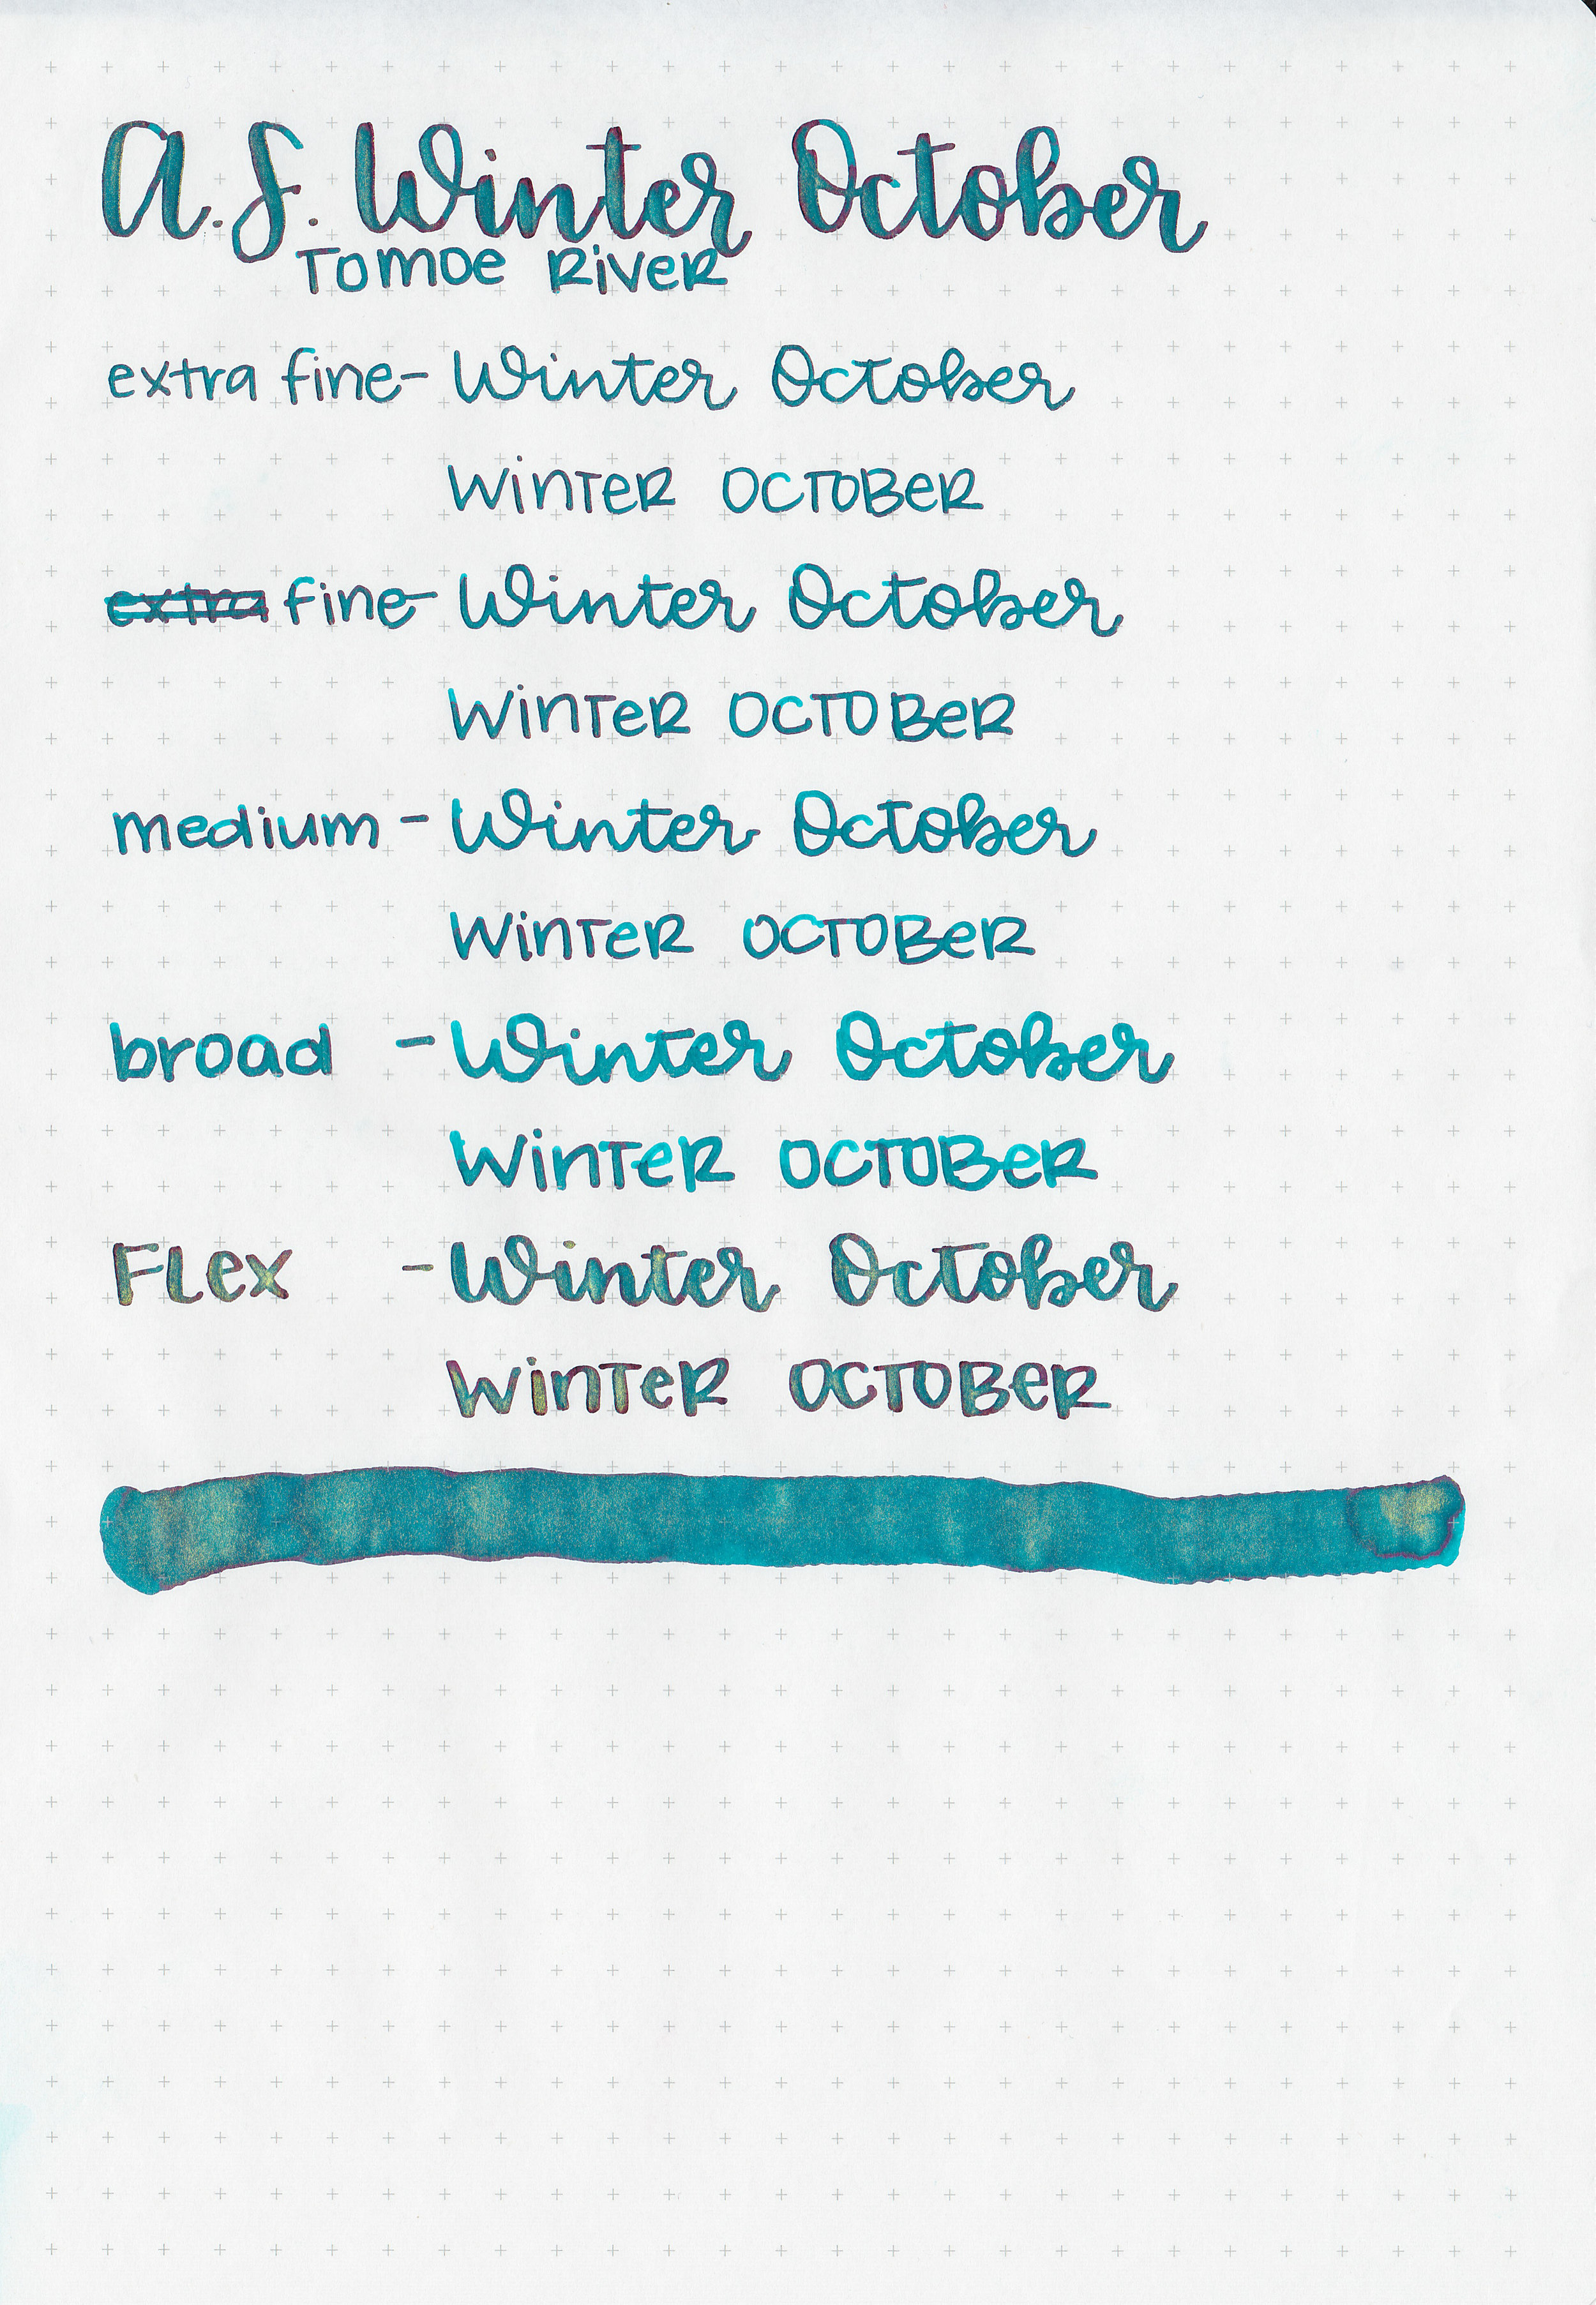 A.S. Winter October
Tomoe River
extra fine- Winter October
WinTeR OCTOBeR
extra fine- Winter October
WinTeR OCTOBeR
medium - Winter October
WinTeR OCTOBeR
broad - Winter October
WinTeR OCTOBeR
FLex - Winter October
WinTeR OCTOBeR